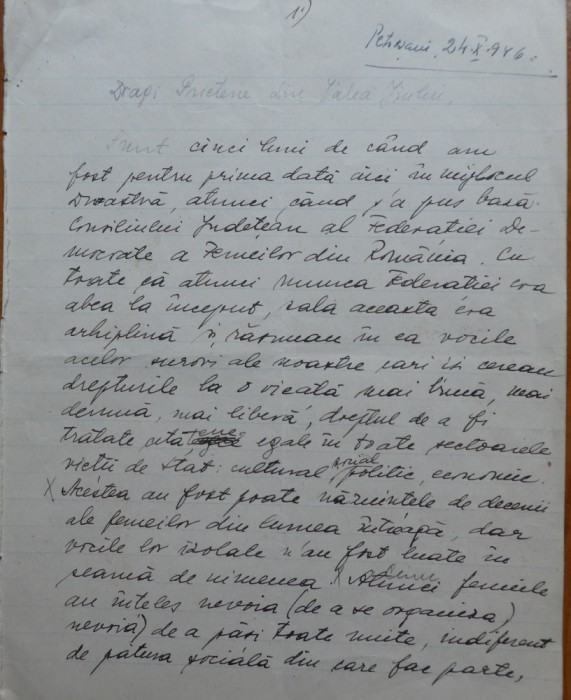 1)
Petroșani, 24.X.946.
Dragi Prietene din Valea Jiului,
Sunt cinci luni de când am
fost pentru prima dată aici în mijlocul
Dvoastră, atunci, când s'a pus bază
Consiliului Județean al Federatiei De-
mocrate a Femeilor din România. Cu
toate că atunci munca Federatiei era
abea la început, sala aceasta era
arhiplină și răsunau în ea vocile
acelor surori ale noastre cari își cereau
drepturile la o vieată mai bună, mai
demnă, mai liberă, dreptul de a fi
tratate cetățene egale în toate sectoarele
vieții de Stat: cultural, social, politic, economic.
X Acestea au fost poate năzuintele de decenii
ale femeilor din lumea întreagă, dar
vocile lor izolate n'au fost luate în
seamă de nimenea. X Atunci femeile
au înteles nevoia (de a se organiza)
nevoiă) de a păși toate unite, indiferent
de pătura socială din care fac parte,